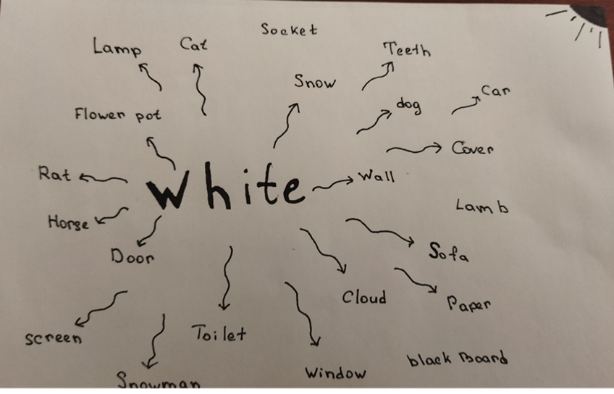 Socket
Lamp
Cat
Teeth
Snow
Car
dog
Flower pot
Cover
Rat
White
Wall
Lamb
Horse
Door
Sofa
Cloud
Paper
screen
Toilet
black Board
Window
Snowman